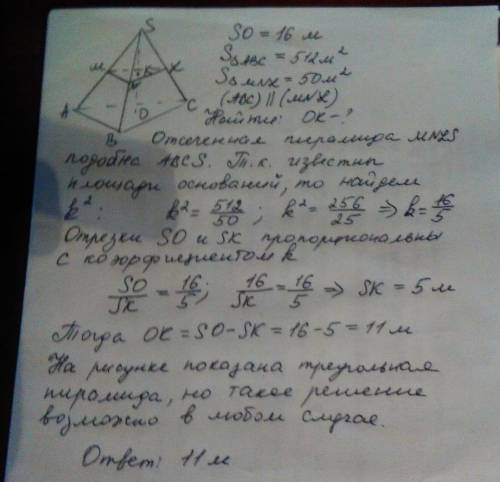 S
M K X
N
A O C
B
SO = 16 м
S△ABC = 512 м²
S△MNX = 50 м²
(ABC) || (MNX)
Найти: OK - ?
Отсеченная пирамида MNXS
подобна ABCS. Т.к. известны
площади оснований, то найдем
k²: k² = 512/50 ; k² = 256/25 ⇒ k = 16/5
Отрезки SO и SK пропорциональны
с коэффициентом k
SO/SK = 16/5; 16/SK = 16/5 ⇒ SK = 5 м
Тогда OK = SO - SK = 16 - 5 = 11 м
На рисунке показана треугольная
пирамида, но такое решение
возможно в любом случае.
Ответ: 11 м